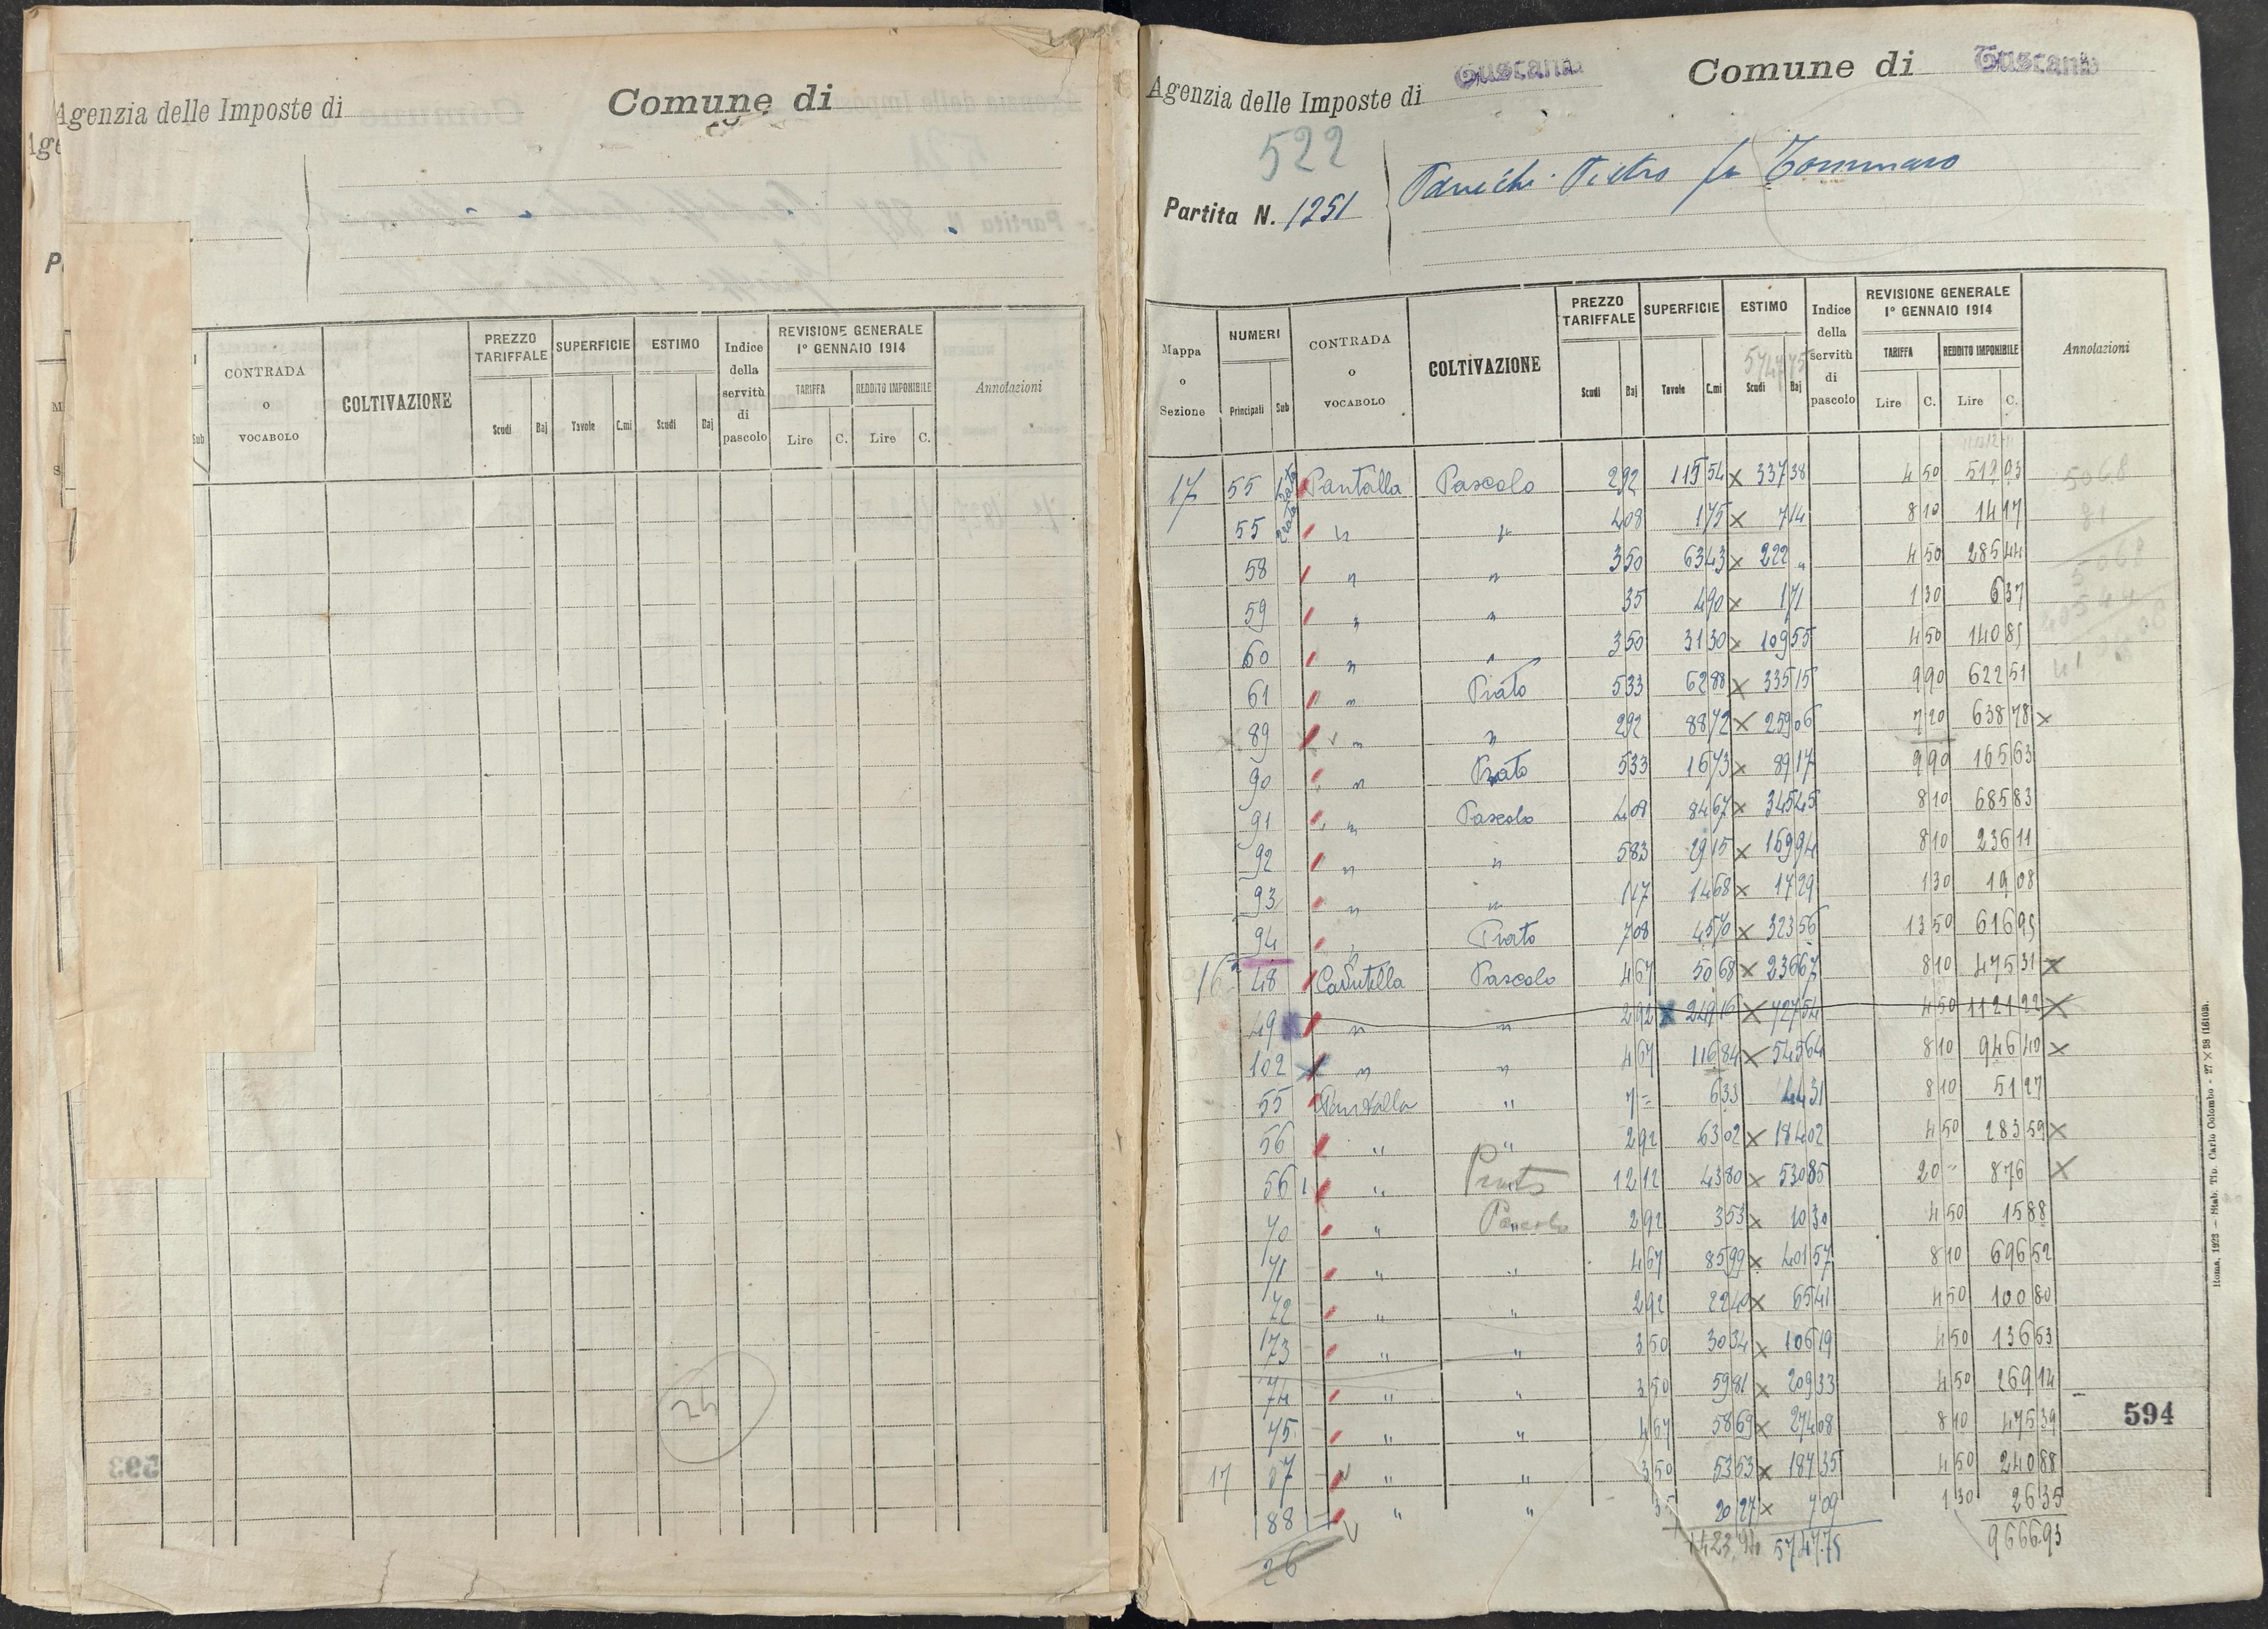 Agenzia delle Imposte di
Comune di
CONTRADA
o
VOCABOLO
COLTIVAZIONE
PREZZO
TARIFFALE
SUPERFICIE
ESTIMO
Indice
della
servitù
di
pascolo
REVISIONE GENERALE
1° GENNAIO 1914
TARIFFA
REDDITO IMPONIBILE
Annotazioni
Sub
Scudi Baj Tavole C.mi Scudi Baj Lire C. Lire C.
24
593
Agenzia delle Imposte di Tuscania Comune di Tuscania
522
Partita N. 1251
Pietro fu Tommaso
Mappa
o
Sezione
NUMERI
Principali Sub
CONTRADA
o
VOCABOLO
COLTIVAZIONE
PREZZO
TARIFFALE
SUPERFICIE
ESTIMO
574775
Indice
della
servitù
di
pascolo
REVISIONE GENERALE
1° GENNAIO 1914
TARIFFA
REDDITO IMPONIBILE
Annotazioni
Scudi Baj Tavole C.mi Scudi Baj Lire C. Lire C.
17 55 Pantalla Pascolo 2 92 115 54 x 337 38 4 50 519 93 5068
55 " " 4 08 1 75 x 7 14 8 10 14 17 81
58 " " 3 50 63 43 x 222 " 4 50 285 44
59 " " 35 4 90 x 1 71 1 30 6 37
60 " " 3 50 31 30 x 109 55 4 50 140 85
61 " Prato 5 33 62 88 x 335 15 9 90 622 51
89 " " 2 92 88 72 x 259 06 7 20 638 78 x
90 " Prato 5 33 16 73 x 89 17 9 90 165 63
91 " Pascolo 4 08 84 67 x 345 45 8 10 685 83
92 " " 5 83 29 15 x 169 94 8 10 236 11
93 " " 1 17 14 68 x 17 29 1 30 19 08
94 " Prato 7 08 45 70 x 323 56 13 50 616 95
16 48 Pascolo 4 67 50 68 x 236 67 8 10 475 31 x
49 " " 2 92 x 249 16 x 727 54 4 50 1121 22 x
102 x " " 4 67 116 84 x 545 64 8 10 946 40 x
55 Pantalla " 7 = 6 33 44 31 8 10 51 27
56 " " 2 92 63 02 x 184 02 4 50 283 59 x
56 1 " Prato 12 12 43 80 x 530 85 20 - 876 x
70 " Pascolo 2 92 3 53 x 10 30 4 50 15 88
71 " " 4 67 85 99 x 401 57 8 10 696 52
72 " " 2 92 22 40 x 65 41 4 50 100 80
73 " " 3 50 30 34 x 106 19 4 50 136 53
74 " " 3 50 59 81 x 209 33 4 50 269 14
75 " " 4 67 58 69 x 274 08 8 10 475 39
594
17 87 " " 3 50 53 53 x 187 35 4 50 240 88
88 " " 35 20 27 x 7 09 1 30 26 35
26 5747.75 9666.93
Roma, 1923 - Stab. Tip. Carlo Colombo - 27 × 38 (16103).